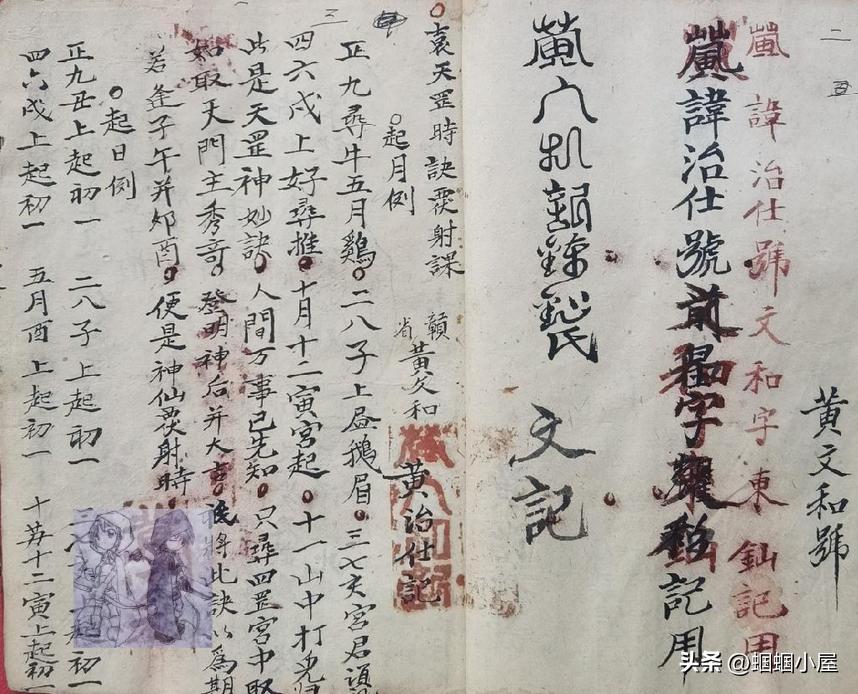 二
五
黃文和號
諱治仕號文和字東記用
諱治仕號字記用
文記
三
袁天罡時訣覆射課
贛省黃文和 黃治仕記
○起月例
正九尋牛五月鷄。二八子上昼鵝眉。三七亥宮君須
四六戌上好尋推。十月十二寅宮起。十一山中打兔
此是天罡神妙訣。人間万事已先知。只尋四罡宮中取
如取天門主秀奇。登明神后并大吉。將此訣以為期
若逢子午并夘酉。便是神仙覆射時
○起日例
正九丑上起初一 二八子上起初一 三 起初一
四六戌上起初一 五月酉上起初一 十 十二寅上起初一
头条 @蝈蝈小屋